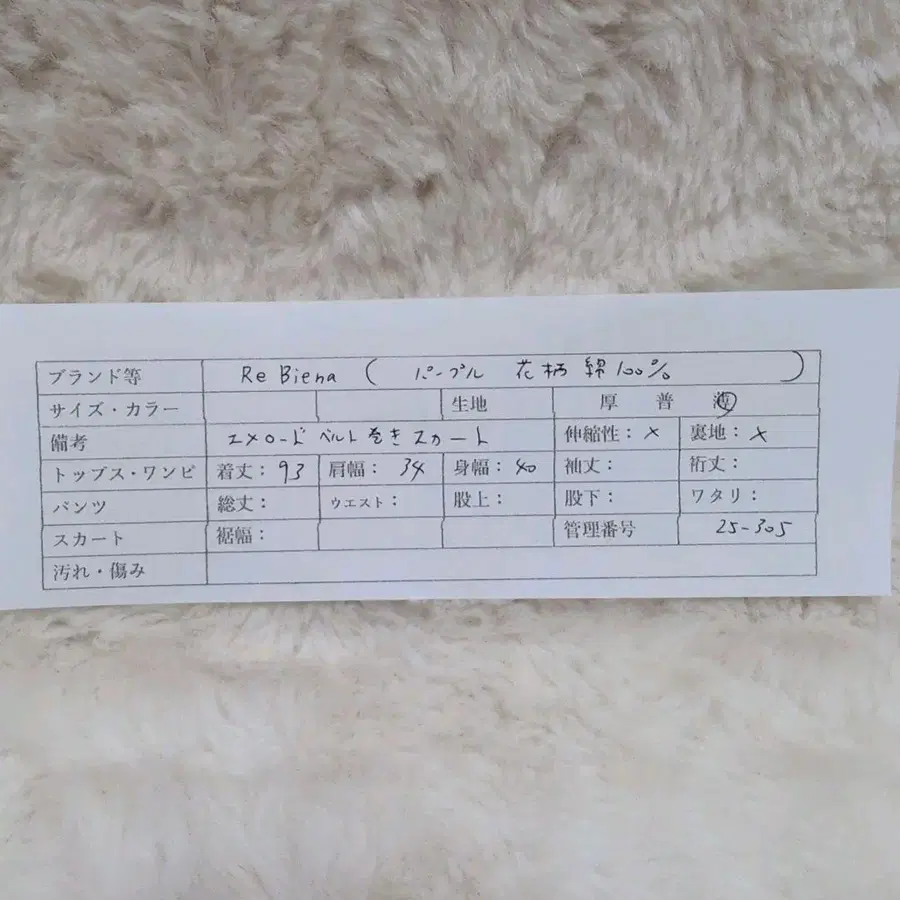 ブランド等 Re Biena ( パープル 花柄 綿100% )
サイズ・カラー 生地 厚 普 薄
備考 エメロード ベルト巻きスカート 伸縮性：× 裏地：×
トップス・ワンピ 着丈：93 肩幅：34 身幅：40 袖丈： 裄丈：
パンツ 総丈： ウエスト： 股上： 股下： ワタリ：
スカート 裾幅： 管理番号 25-305
汚れ・傷み